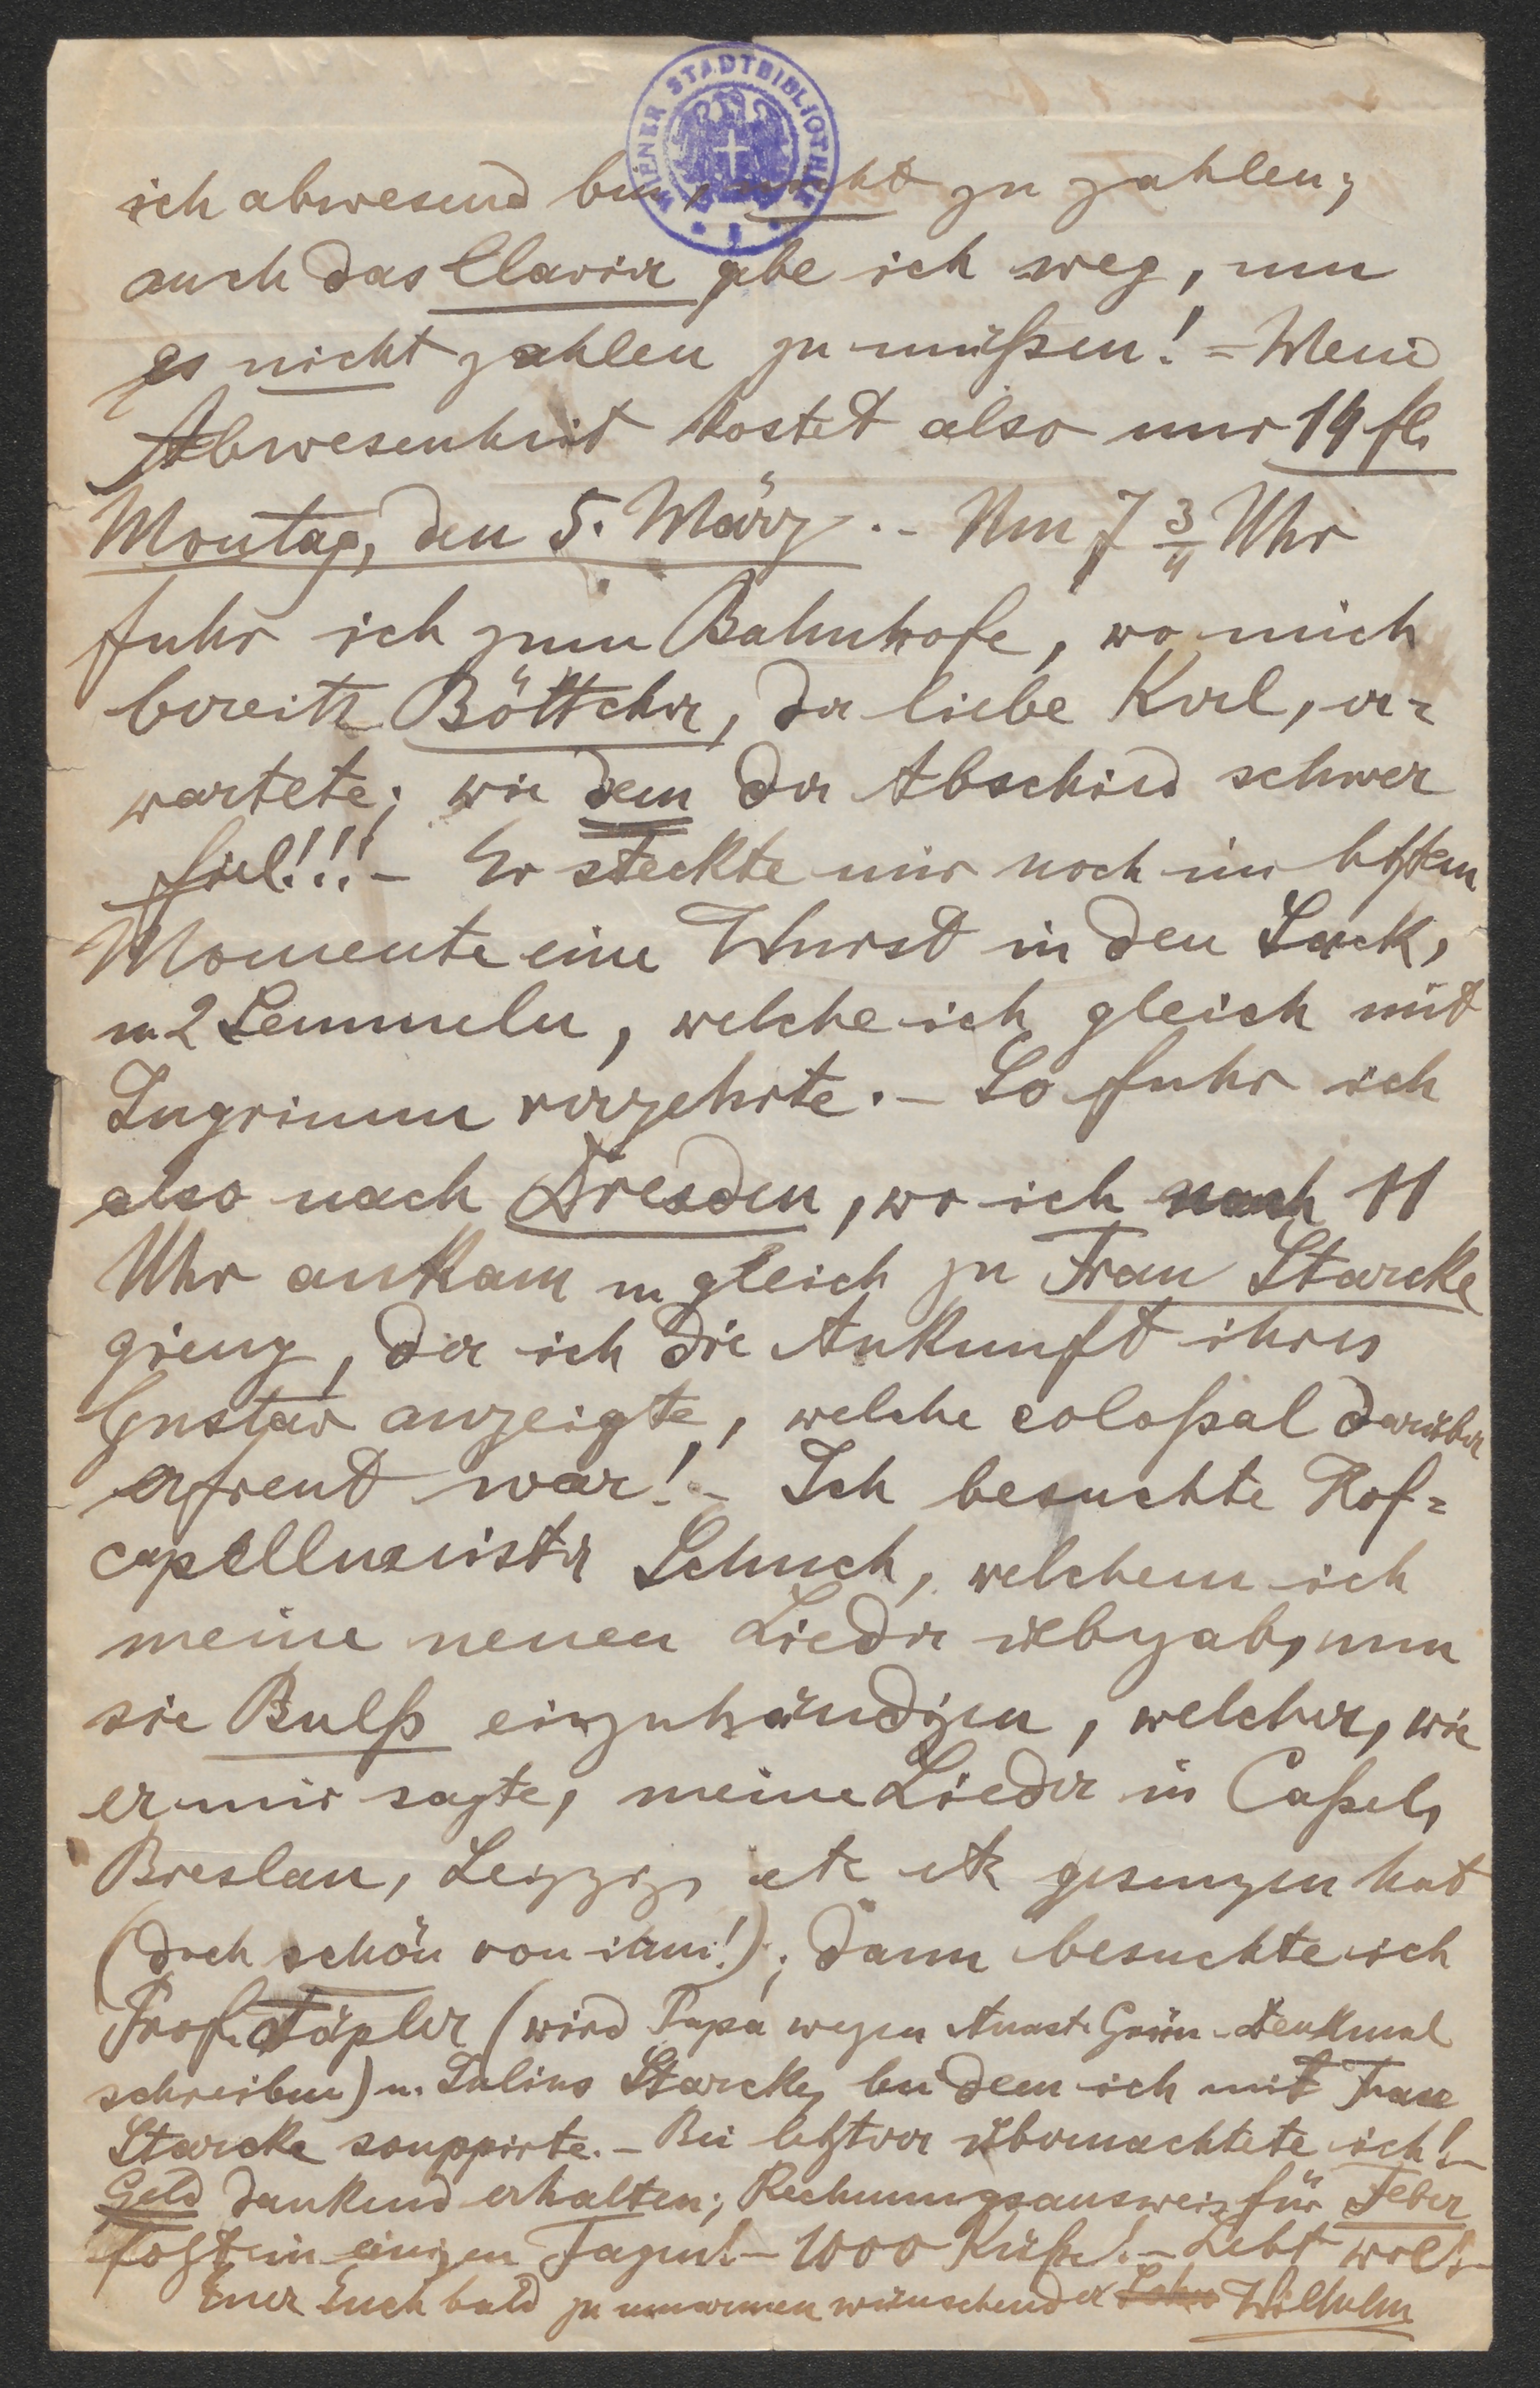 WIENER STADTBIBLIOTHEK
ich abwesend bin, nicht zu zahlen;
auch das Clavier gebe ich weg, um
es nicht zahlen zu müßen! – Meine
Abwesenheit kostet also nur 14 fl.
Montag, den 5. März. – Um 7 3/4 Uhr
fuhr ich zum Bahnhofe, wo mich
bereits Böttcher, der liebe Kerl, er=
wartete; wie dem der Abschied schwer
fiel!!! – Er steckte mir noch im letzten
Momente eine Wurst in den Sack,
u. 2 Semmeln, welche ich gleich mit
Ingrimm verzehrte. – So fuhr ich
also nach Dresden, wo ich nach 11
Uhr ankam u. gleich zu Frau Starcke
gieng, der ich die Ankunft ihres
Gustav anzeigte, welche coloßal darüber
erfreut war! – Ich besuchte Hof=
capellmeister Schuch, welchem ich
meine neuen Lieder übergab, um
sie Bulß einzuhändigen, welcher, wie
er mir sagte, meine Lieder in Caßel,
Breslau, Leipzig, etc etc gesungen hat
(doch schön von ihm!); dann besuchte ich
Prof. Töpler (wird Papa wegen Anast. Grün-Denkmal
schreiben) u. Julius Starcke, bei dem ich mit Frau
Starcke souppirte. – Bei letzterer übernachtete ich! –
Geld dankend erhalten; Rechnungsausweis für Feber
folgt in einigen Tagen! – 1000 Küße! – Lebt wol! –
Euer Euch bald zu umarmen wünschender Sohn Wilhelm